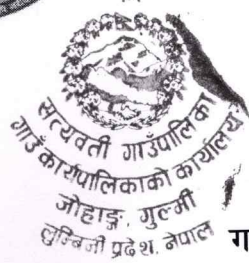 सत्यवती गाउँपालिका
गाउँ कार्यपालिकाको कार्यालय
जोहाङ्ग, गुल्मी
लुम्बिनी प्रदेश, नेपाल
ग